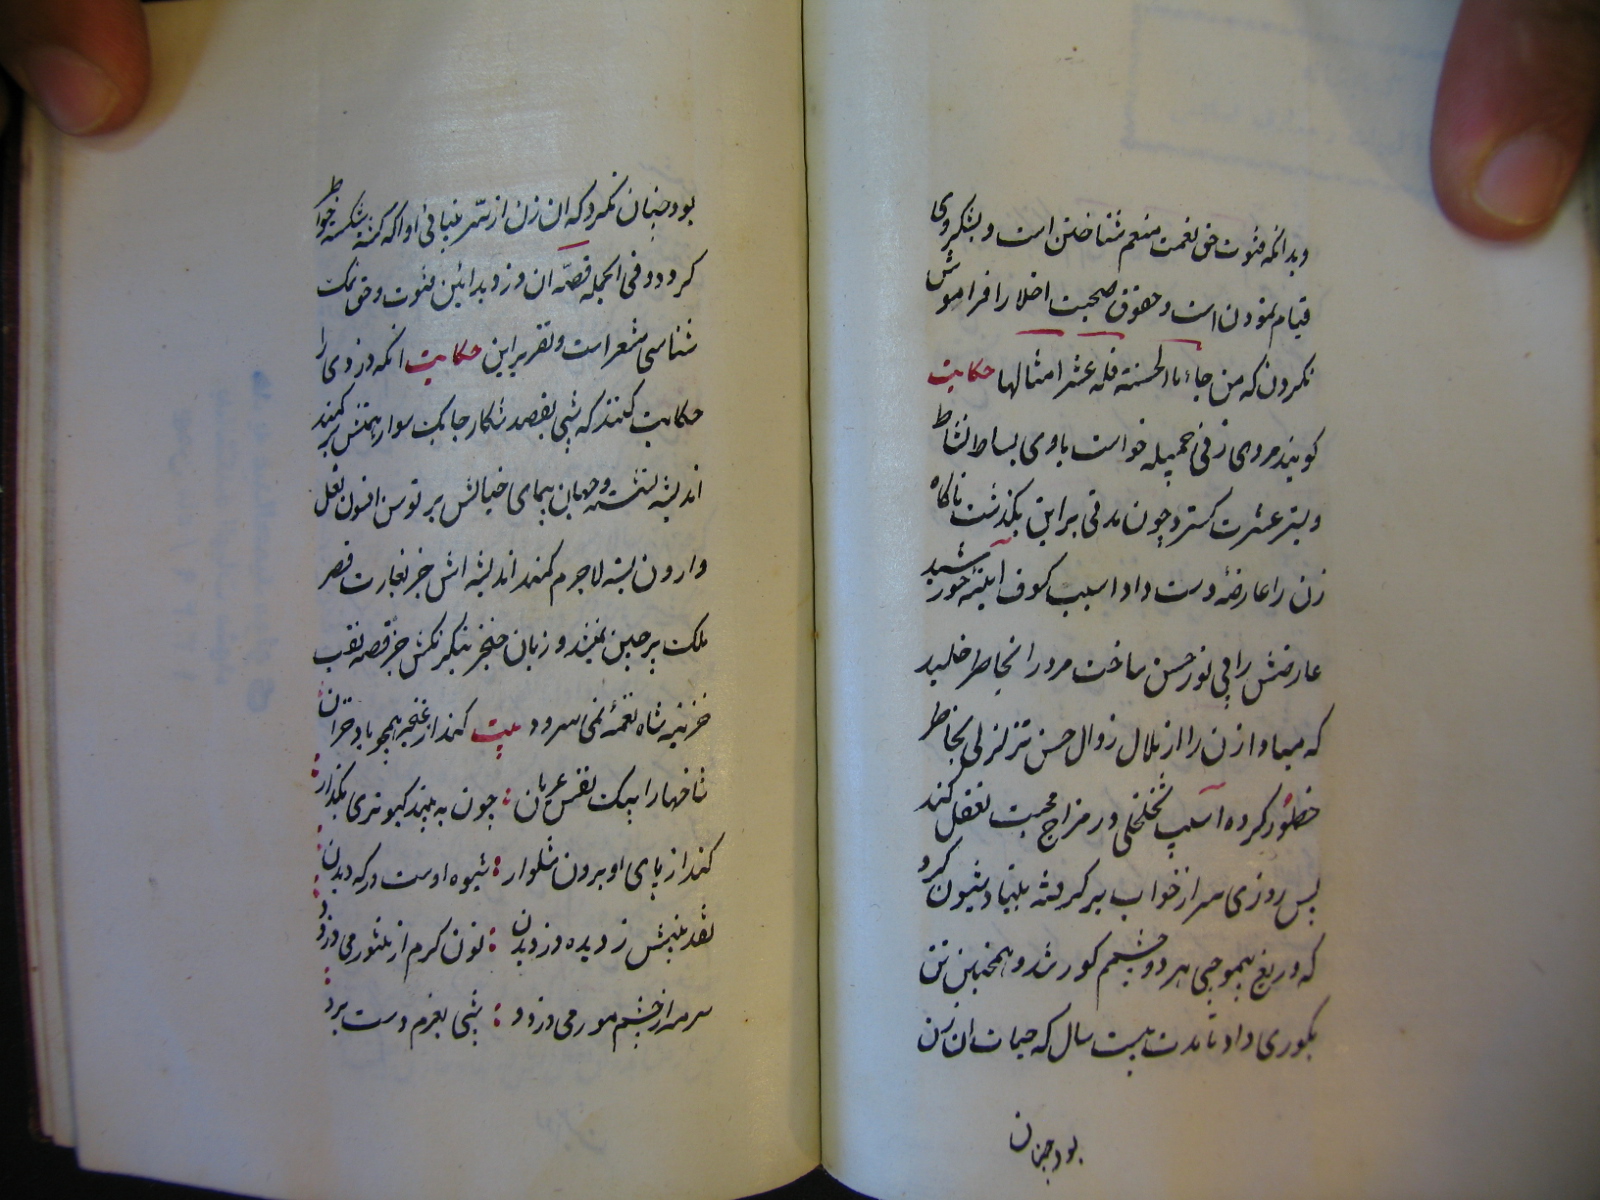 وبدانکه فتوت حق نعمت منعم شناختن است و بشکر وی
قیام نمودن است و حقوق صحبت اخلا را فراموش
نکردن که من جاء بالحسنة فله عشر امثالها حکایت
کویند مردی زنی جمیله خواست با وی بساط نشاط
و بستر عشرت کسترد چون مدتی براین بکذشت ناکاه
زن را عارضه دست داد اسیب کسوف ایینه خورشید
عارضش را بی نور حسن ساخت مرد را بخاطر خلید
که مبادا زن را از ملال زوال حسن تزلزلی بخاطر
خطور کرده اسیب تخلخلی در مزاج محبت تعقل کند
پس روزی سر از خواب بر کرفته بنیاد شیون کرد
که دریغ بیموجبی هر دو چشمم کور شد و همچنین تن
بکوری داد تا مدت بیست سال که حیات ان زن
بود چنان
بود چنان نکرد که ان زن از سر بینائی او اکه کشته شکسته خواطر
کردد و فی الجمله قصه ان دزد بدائین فتوت و حق نمک
شناسی مشعر است و تقریر این حکایت انکه دزدی را
حکایت کنند که شبی بقصد شکار چابک سوار همتش بر کمند
اندیشه ننشسته و جهان پیمای خیالش بر توسن افسون نعل
وارون بسته لاجرم کمند اندیشه اش جز بغارت قصر
ملک پر چین نمیشد و زبان خنجر بتکبر نکش جز قصه نقب
خزینه شاه نغمه نمی سرود بیت کند از غنچه همچو باد خزان
شاخها را بیک نفس عریان : چون به بیند کبوتری بکذار
کند از پای او برون شلوار : شیوه اوست در که دیدن
نقد بینش ز دیده دزدیدن : نون کرم از تنور می دزدد
سرمه از چشم مور می دزدد : شبی بعزم دست برد